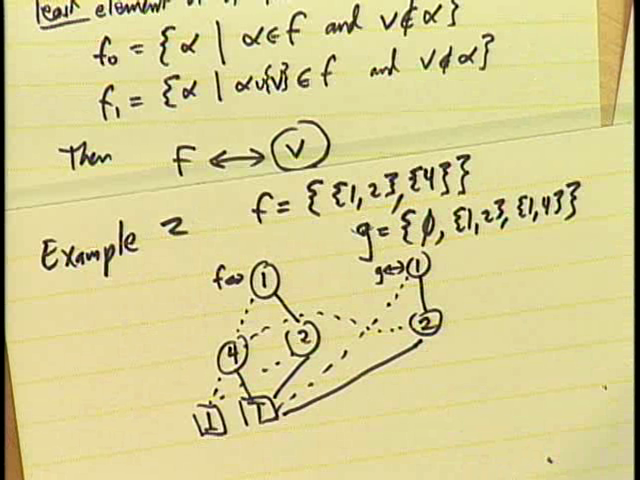 least element of
f₀ = {α | α∈f and v∉α}
f₁ = {α | α∪{v}∈f and v∉α}
Then F ↔ v
Example 2 f = {{1,2},{4}}
g = {∅, {1,2}, {1,4}}
f↔ 1 g↔ 1
2 2
4
⊥ ⊤